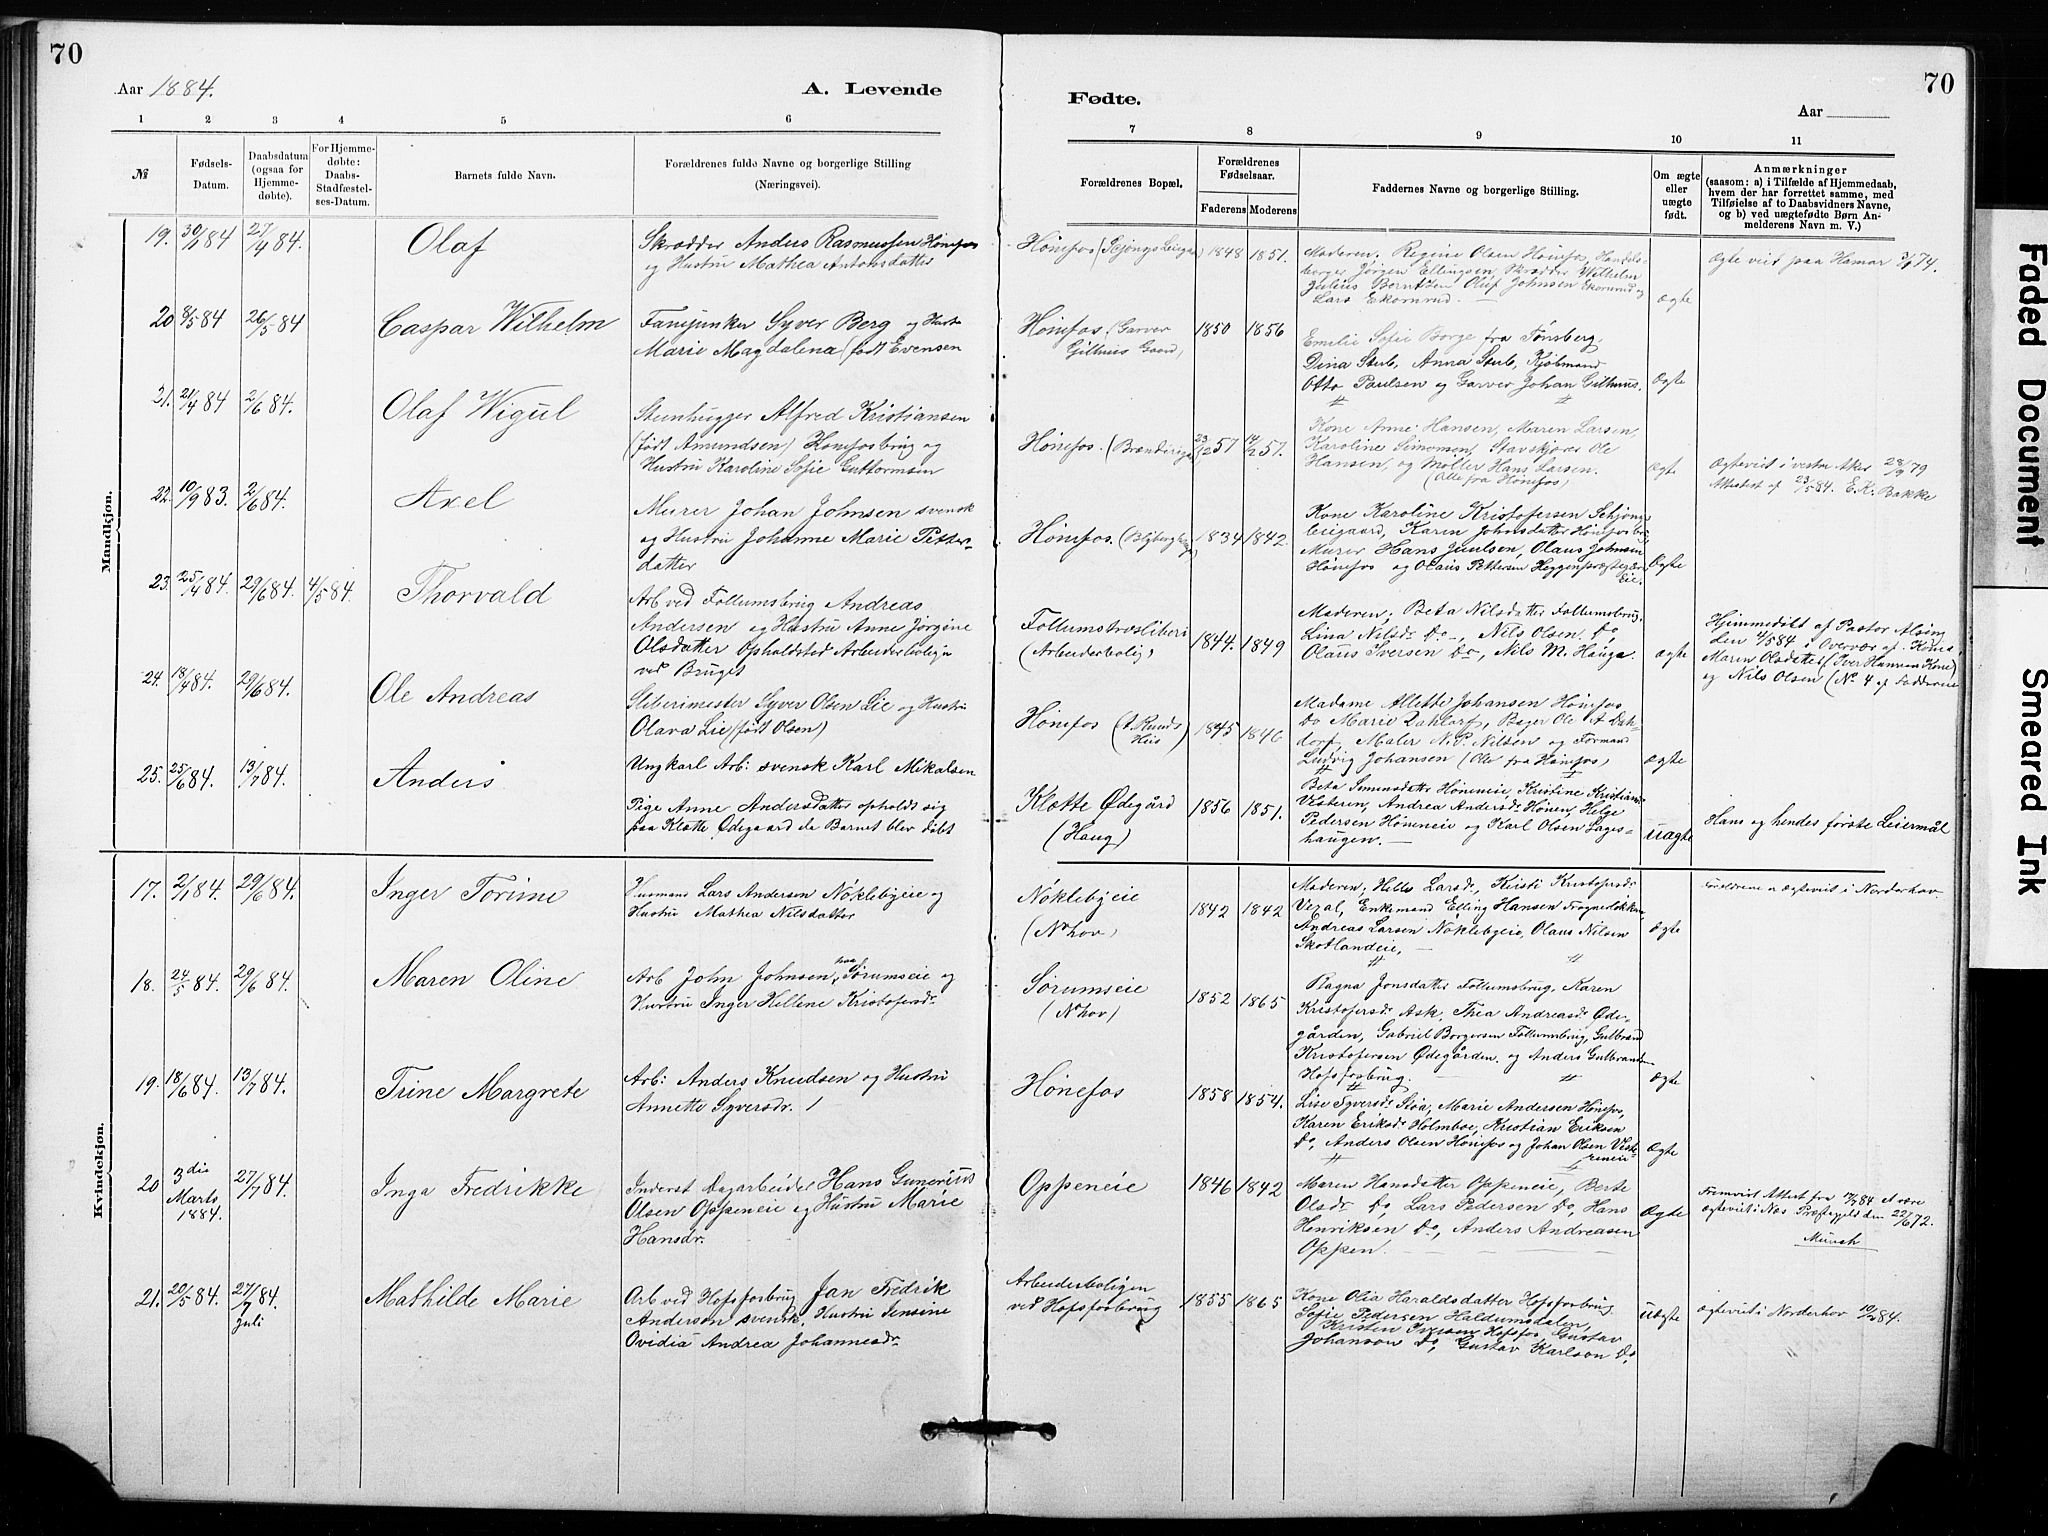 70
Aar 1884.
A. Levende
1 2 3 4 5 6
№
Fødsels-
Datum.
Daabsdatum
(ogsaa for
Hjemme-
døbte).
For Hjemme-
døbte:
Daabs-
Stadfæstel-
ses-Datum.
Barnets fulde Navn.
Forældrenes fulde Navne og borgerlige Stilling
(Næringsvei).
Mandkjøn.
19. 30/1 84 27/4 84. Olaf
Skrædder Anders Rasmussen Hønefos
og Hustru Mathea Antonsdatter
20 8/5 84 26/5 84 Caspar Wilhelm
Fanejunker Syver Berg og Hust
Marie Magdalena (født Evensen
21. 21/4 84 2/6 84. Olaf Wigul
Stenhugger Alfred Kristiansen
(født Amundsen) Hønefosbrug og
Hustru Karoline Sofie Guttormsen
22. 10/9 83. 2/6 84. Axel
Murer Johan Johnsen svensk
og Hustru Johanne Marie Pitter-
datter
23. 25/4 84. 29/6 84. 4/5 84. Thorvald
Arb ved Follumsbrug Andreas
Andersen og Hustru Anne Jørgine
Olsdatter Opholdsted Arbeiderbolign
ved Bruget
24. 18/4 84. 29/6 84. Ole Andreas
Sliberimester Syver Olsen Lie og Hustru
Olava Lie (født Olsen)
25. 25/6 84. 13/7 84. Anders
Ungkarl Arb: svensk Karl Mikalsen
Pige Anne Andersdatter opholdt sig
paa Klætte Ødegaard da Barnet blev døbt
Kvindekjøn.
17. 2/1 84. 29/6 84. Inger Torine
Husmand Lars Andersen Nöklebyeie og
Hustru Mathea Nilsdatter
18. 24/5 84. 29/6 84. Maren Oline
Arb John Johnsen, paa Sørumseie og
Hustru Inger Hellene Kristofersdr.
19. 18/6 84. 13/7 84. Trine Margrete
Arb: Anders Knudsen og Hustru
Annette Syversdr.
20 3die
Marts
1884. 27/7 84. Inga Fredrikke
Inderst Dagarbeider Hans Gunerius
Olsen Oppeneie og Hustru Marie
Hansdr.
21. 20/5 84. 27/7 84.
Juli Mathilde Marie
Arb ved Hofsforbrug Jan Fredrik
Anderson svensk, Hustru Jensine
Ovidia Andrea Johannesdr.
70
Fødte.
Aar
7 8 9 10 11
Forældrenes Bopæl.
Forældrenes
Fødselsaar.
Faderens Moderens
Faddernes Navne og borgerlige Stilling.
Om ægte
eller
uægte
født.
Anmærkninger
(saasom: a) i Tilfælde af Hjemmedaab,
hvem der har forrettet samme, med
Tilføielse af to Daabsvidners Navne,
og b) ved uægtefødte Børn An-
melderens Navn m. V.)
Hønefos 1848 1851.
Moderen, Regine Olsen Hønefos, Handels-
borger Jörgen Ellingsen, Skrædder Wilhelm
Julius Berntsen Oluf Johnsen Ekornrud og
Lars Ekornrud.
Ægte
Ægte viet paa Hamar
Hønefos (Garver
Gilhuus Gaard) 1850 1856
Emelie Sofie Borge fra Tønsberg,
Dina Sterb, Anna Sterb, Kjöbmand
Otto Paulsen og Garver Johan Gilhuus.
Ægte
Hønefos. 57 57.
Kone Anne Hansen, Maren Larsen,
Karoline Simonsen, Stavskjører Ole
Hansen, og Møller Hans Larsen.
(Alle fra Hønefos)
Ægte
Ægteviet i vestre Aker 28/9 79
Attestet af 23/5 84. E. K. Bakke
Hønefos. 1834 1842.
Kone Karoline Kristofersen Schjong-
leigaard, Karen Johnsdatter Hønefosbru,
Murer Hans Juulsen, Olaus Johnsen
Hønefos og Olaus Pettersen Heggenpræstegaard
Eie.
Ægte
Follumstræsliberi
(Arbeiderbolig) 1844. 1849
Moderen, Beta Nilsdatter Follumsbrug,
Lina Nilsdr Do, Nils Olsen Do,
Olaus Iversen Do, Nils M. Hauga.
Ægte
Hjemmedöbt af Pastor Alsing
den 4/5 84. i Overvær af Kone
Maren Olsdatter (Iver Hansens Kone)
og Nils Olsen (No 4 af Fadderne
Hønefos 1845 1846
Madame Allette Johansen Hønefos
Do Marie Dahlerf, Bager Ole A Dah-
dorf, Maler N. P. Nilsen og Formand
Ludvig Johansen (Alle fra Hønefos)
Ægte
Klætte Ødegård
(Haug) 1856 1851.
Beta Simensdatter Höneneie, Kristine Kristiansdr
Vesteren, Andrea Andersdr Hönen, Helge
Pedersen Höneneie og Karl Olsen Hages-
haugen.
Uægte
Hans og hendes første Leiermål
Nöklebyeie
(N.hov) 1842 1842
Moderen, Helle Larsdr, Kirsti Kristofersdr
Veral, Enkemand Elling Hansen Frognerløkken,
Andreas Larsen Noklebyeie, Olaus Nilsen
Skotlandeie,
Ægte
Forældrene er Ægteviet i Norderhov
Sörumseie
(N.hov) 1852 1865
Ragna Jonsdatter Follumsbrug, Karen
Kristofersdr Ask, Thea Andreasdr Øde-
gården, Gabriel Borgersen Follumsbrug, Gulbrand
Kristofersen Ødegården og Anders Gulbrands
Hofsforbrug.
Ægte
Hønefos 1858 1854.
Lise Syversdr Stöa, Marie Andersen Hönefos,
Karen Eriksdr Holmboe, Kristian Eriksen
Do, Anders Olsen Hönefos og Johan Olsen Veste-
reneie
Ægte
Oppeneie 1846 1842
Maren Hansdatter Oppeneie, Berte
Olsdr Do Lars Pedersen Do, Hans
Henriksen Do, Anders Andreasen
Oppen.
Ægte
Fremvist Attest fra 84 at være
Ægteviet i Næs Præstegjeld den 22/6 72.
Münch
Arbeiderboligen
ved Hofsforbrug 1855 1865
Kone Olia Haraldsdatter Hofsforbrug
Sofie Pedersen Haldumsdalen,
Kristen Iversen Hofsfos, Gustav
Johanson Do, Gustav Karlson Do.
Uægte
Ægteviet i Norderhov 84.
Faded Document
Smeared Ink